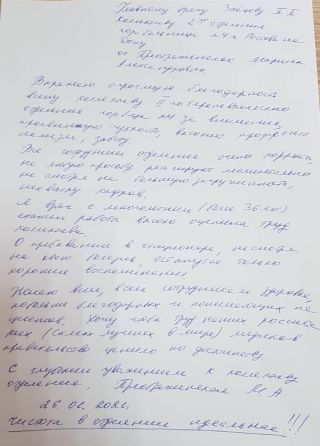 Главному врачу Зайцеву П П
Коллективу 2ого отделения
гор больницы №4 г. Ростова на
Дону
от Преображенской Марины
Александровны
Выражаю огромную благодарность
всему коллективу II го терапевтического
отделения гор б-цы №4 за внимание,
проявленную чуткость, высокий профессио
нализм, заботу.
Все сотрудники отделения очень корректны,
на любую просьбу реагируют моментально
не смотря на большую загруженность,
нехватку кадров.
Я врач с многолетним (более 36 лет)
стажем работы высоко оценила труд
коллектива.
О пребывании в стационаре, несмотря
на свою болезнь, останутся только
хорошие воспоминания
Желаю вам, всем сотрудникам здоровья,
побольше благодарных и понимающих па
циентов. Хочу чтобы труд наших российс
ких (самых лучших в мире) медиков
правительство ценило по достоинству
С глубоким уважением к коллективу
отделения, Преображенская М А
26.01.2021г
Чистота в отделении идеальная!!!